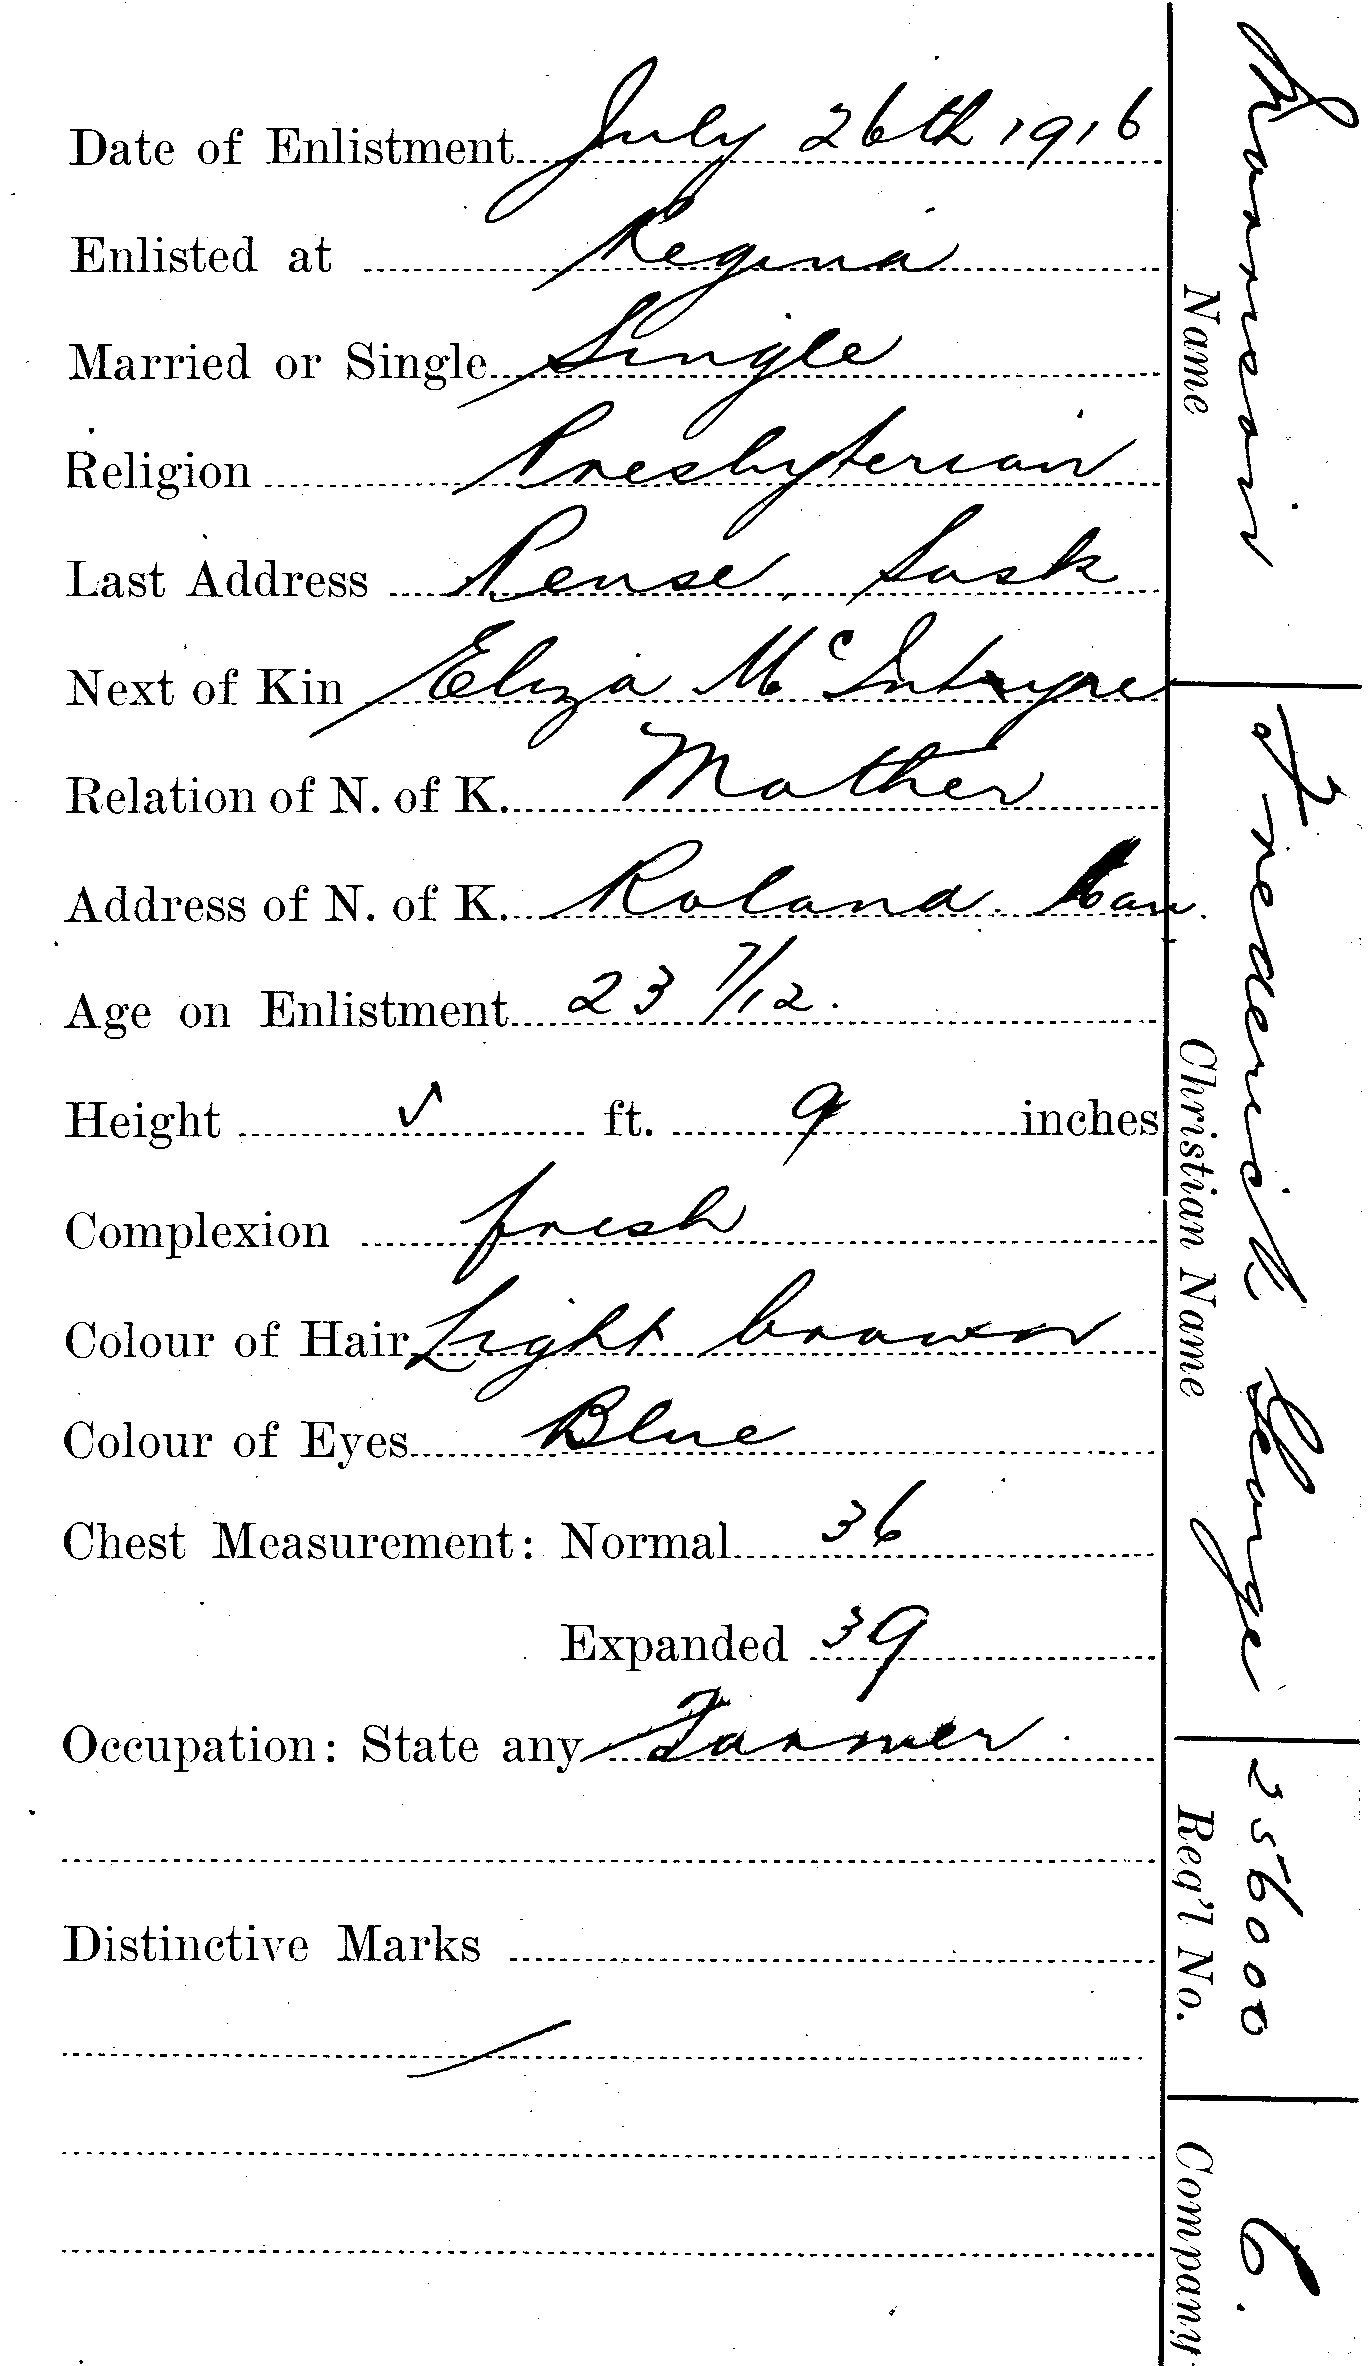 Date of Enlistment July 26th 1916
Enlisted at Regina
Married or Single Single
Religion Presbyterian
Last Address Pense, Sask
Next of Kin Eliza McIntyre
Relation of N. of K. Mother
Address of N. of K. Roland. Can.
Age on Enlistment 23 7/12.
Height 5 ft. 9 inches
Complexion fresh
Colour of Hair Light brown
Colour of Eyes Blue
Chest Measurement: Normal 36
Expanded 39
Occupation: State any Farmer.
Distinctive Marks
Name
Frederick George
Christian Name
256000
Reg'l No.
C.
Company